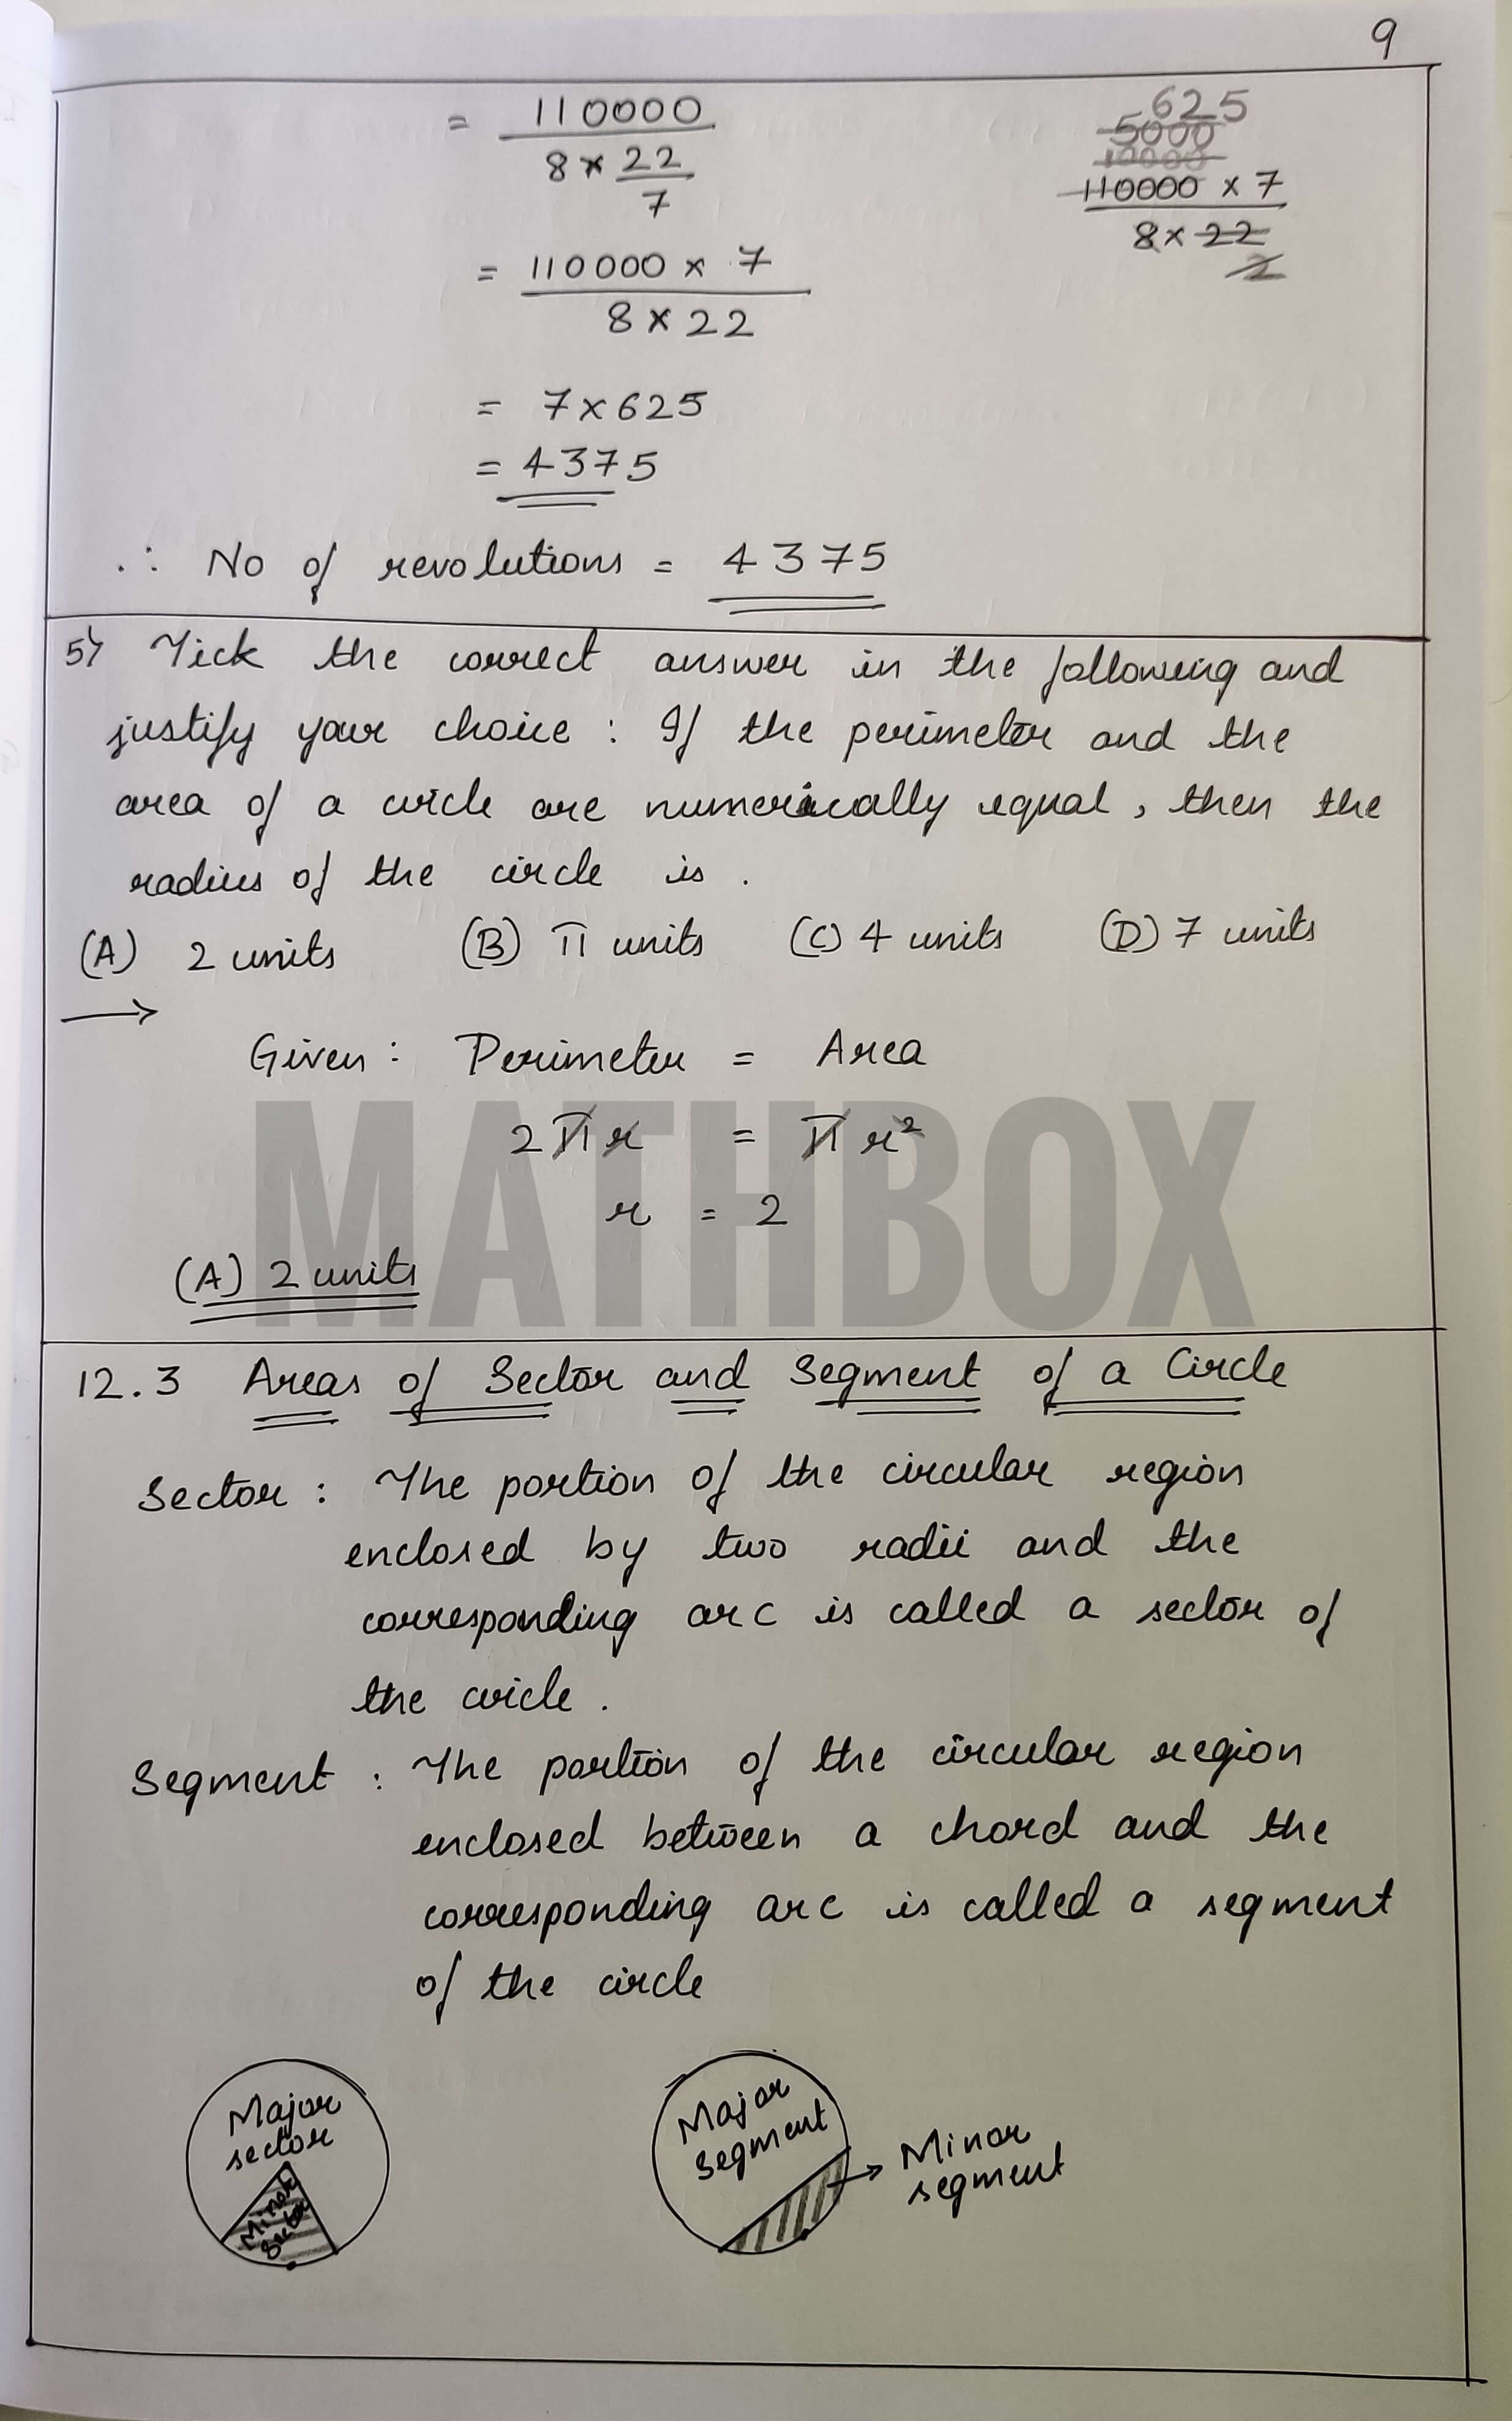 9
= 110000
8 × 22
7
625
5000
10000
110000 × 7
8 × 22
2
= 110000 × 7
8 × 22
= 7 × 625
= 4375
∴ No of revolutions = 4375
5) Tick the correct answer in the following and
justify your choice : If the perimeter and the
area of a circle are numerically equal, then the
radius of the circle is .
(A) 2 units (B) π units (C) 4 units (D) 7 units
→
Given : Perimeter = Area
2πr = πr²
r = 2
(A) 2 units
MATHBOX
12.3 Areas of Sector and Segment of a Circle
Sector : The portion of the circular region
enclosed by two radii and the
corresponding arc is called a sector of
the circle .
Segment : The portion of the circular region
enclosed between a chord and the
corresponding arc is called a segment
of the circle
Major
sector
Minor
sector
Major
segment
Minor
segment